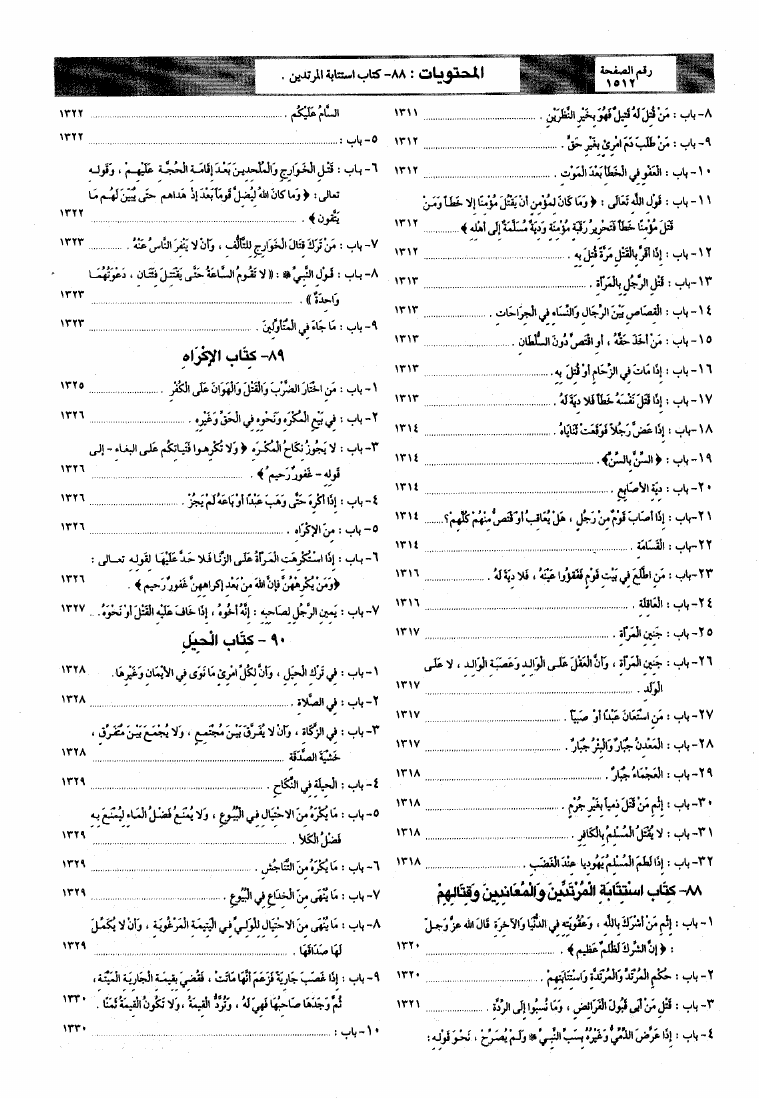 رقم الصفحة
١٥١٢
المحتويات : ٨٨- كتاب استتابة المرتدين .
٨- باب : مَنْ قُتِلَ لَهُ قَتِيلٌ فَهُوَ بِخَيْرِ النَّظَرَيْنِ . ١٣١١
٩- باب : مَنْ طَلَبَ دَمَ امْرِئٍ بِغَيْرِ حَقٍّ . ١٣١٢
١٠- باب : الْعَفْوِ في الْخَطَأ بَعْدَ الْمَوْتِ . ١٣١٢
١١- باب : قَوْلِ اللَّه تَعَالَى : ﴿ وَمَا كَانَ لمُؤْمِنٍ أنْ يَقْتُلَ مُؤْمِنًا إلا خَطَأً وَمَنْ
قَتَلَ مُؤْمِنًا خَطَأً فَتَحْرِيرُ رَقَبَةٍ مُؤْمِنَةٍ وَديَةٌ مُسَلَّمَةٌ إلَى أهْلِه ﴾ ١٣١٢
١٢- باب : إذَا أقَرَّ بِالْقَتْلِ مَرَّةً قُتِلَ بِهِ . ١٣١٢
١٣- باب : قَتْلِ الرَّجُلِ بِالْمَرْأة . ١٣١٣
١٤- باب : الْقصَاصِ بَيْنَ الرِّجَالِ وَالنِّسَاءِ في الْجِرَاحَات . ١٣١٣
١٥- باب : مَنْ أخَذَ حَقَّهُ ، أو اقْتَصَّ دُونَ السُّلْطَان . ١٣١٣
١٦- باب : إذَا مَاتَ في الزِّحَامِ أوْ قُتِلَ بِه. ١٣١٣
١٧- باب : إذَا قَتَلَ نَفْسَهُ خَطَأً فَلا دِيَةَ لَهُ . ١٣١٣
١٨- باب : إذَا عَضَّ رَجُلاً فَوَقَعَتْ ثَنَايَاهُ . ١٣١٤
١٩- باب : ﴿ السِّنَّ بِالسِّنِّ ﴾. ١٣١٤
٢٠- باب : دِيَةِ الأصَابِعِ . ١٣١٤
٢١- باب : إذَا أصَابَ قَوْمٌ مِنْ رَجُلٍ ، هَلْ يُعَاقِبُ أوْ يَقْتَصُّ مِنْهُمْ كُلِّهِمْ؟ ١٣١٤
٢٢- باب : الْقَسَامَة . ١٣١٤
٢٣- باب : مَنِ اطَّلَعَ في بَيْتِ قَوْمٍ فَفَقَؤُوا عَيْنَهُ ، فَلا دِيَةَ لَهُ . ١٣١٦
٢٤- باب : الْعَاقِلَة . ١٣١٦
٢٥- باب : جَنينِ الْمَرْأة . ١٣١٧
٢٦- باب : جَنِينِ الْمَرْأة ، وَأنَّ الْعَقْلَ عَلَى الْوَالِد وَعَصَبَةِ الْوَالِد ، لا عَلَى
الْوَلَد . ١٣١٧
٢٧- باب : مَنِ اسْتَعَانَ عَبْدًا أوْ صَبِيًّا . ١٣١٧
٢٨- باب : الْمَعْدِنُ جُبَارٌ وَالْبِئْرُ جُبَارٌ . ١٣١٧
٢٩- باب : الْعَجْمَاءُ جُبَارٌ . ١٣١٨
٣٠- باب : إثْمِ مَنْ قَتَلَ ذِمِّيًا بِغَيْرِ جُرْمٍ . ١٣١٨
٣١- باب : لا يُقْتَلُ الْمُسْلِمُ بِالْكَافِرِ . ١٣١٨
٣٢- باب : إذَا لَطَمَ الْمُسْلِمُ يَهُوديا عِنْدَ الْغَضَبِ . ١٣١٨
٨٨- كتَاب اسْتتَابَة الْمُرْتَدِّينَ وَالْمُعَاندِينَ وَقتَالهِمْ
١- باب : إثْمِ مَنْ أشْرَكَ بِاللَّه ، وَعُقُوبَتِه في الدُّنْيَا وَالآخِرَة قَالَ اللَّه عزَّ وَجلَّ
: ﴿ إنَّ الشِّرْكَ لَظُلْمٌ عَظيم ﴾ . ١٣٢٠
٢- باب : حُكْمِ الْمُرْتَدِّ وَالْمُرْتَدَّة وَاسْتِتَابَتِهِمْ. ١٣٢٠
٣- باب : قَتْلِ مَنْ أبَى قَبُولَ الْفَرَائِضِ ، وَمَا نُسِبُوا إلَى الرِّدَّة . ١٣٢١
٤- باب : إذَا عَرَّضَ الذِّمِّيُّ وَغَيْرُهُ بِسَبِّ النَّبِيِّ ﷺ وَلَمْ يُصَرِّحْ ، نَحْوَ قَوْلِه :
السَّامُ عَلَيْكُم . ١٣٢٢
٥- باب : ١٣٢٢
٦- باب : قَتْلِ الْخَوَارِجِ وَالْمُلْحِدِينَ بَعْدَ إقَامَةِ الْحُجَّةِ عَلَيْهِمْ ، وَقَوْلِه
تعالى : ﴿ وَمَا كَانَ اللهُ لِيُضلَّ قَوْماً بَعْدَ إذْ هَدَاهم حتَّى يُبَيِّنَ لَهُم مَا
يَتَّقُون ﴾ . ١٣٢٢
٧- باب : مَنْ تَرَكَ قِتَالَ الْخَوَارِجِ لِلتَّألُّفِ ، وَأنْ لا يَنْفِرَ النَّاسُ عَنْهُ . ١٣٢٣
٨- باب : قَوْلِ النَّبِيِّ ﷺ : « لا تَقُومُ السَّاعَةُ حَتَّى يَقْتَتِلَ فِئَتَان ، دَعْوَتُهُمَا
وَاحِدَةٌ » . ١٣٢٣
٩- باب : مَا جَاءَ في الْمُتَأوِّلِينَ . ١٣٢٣
٨٩- كِتَاب الإكْرَاه
١- باب : مَنِ اخْتَارَ الضَّرْبَ وَالْقَتْلَ وَالْهَوَانَ عَلَى الْكُفْرِ . ١٣٢٥
٢- باب : في بَيْعِ الْمُكْرَهِ وَنَحْوِهِ في الْحَقِّ وَغَيْرِهِ . ١٣٢٦
٣- باب : لا يَجُوزُ نِكَاحُ الْمُكْرَهِ ﴿ وَلا تُكْرِهوا فَتَيَاتِكُم عَلى البغاء - إلى
قوله - غفورٌ رَحيم ﴾ . ١٣٢٦
٤- باب : إذَا أُكْرِهَ حَتَّى وَهَبَ عَبْدًا أوْ بَاعَهُ لَمْ يَجُزْ . ١٣٢٦
٥- باب : مِنَ الإكْرَاه . ١٣٢٦
٦- باب : إذَا اسْتُكْرِهَتِ الْمَرْأةُ عَلَى الزِّنَا فَلا حَدَّ عَلَيْهَا لِقَولِه تعالى :
﴿وَمَنْ يُكْرِهْهُنَّ فإنَّ اللهَ مِنْ بَعْدِ إكراههِنَّ غَفُورٌ رَحيم ﴾ . ١٣٢٦
٧- باب : يَمِينِ الرَّجُلِ لِصَاحِبِه : إنَّهُ أخُوهُ ، إذَا خَافَ عَلَيْهِ الْقَتْلَ أوْ نَحْوَهُ . ١٣٢٧
٩٠ - كتَاب الْحيَل
١- باب : في تَرْكِ الْحِيَلِ ، وَأنَّ لِكُلِّ امْرِئٍ مَا نَوَى في الأيْمَانِ وَغَيْرِهَا. ١٣٢٨
٢- باب : في الصَّلاة . ١٣٢٨
٣- باب : في الزَّكَاة ، وَأنْ لا يُفَرَّقَ بَيْنَ مُجْتَمِعٍ ، وَلا يُجْمَعَ بَيْنَ مُتَفَرِّقٍ ،
خَشْيَةَ الصَّدَقَة ١٣٢٨
٤- باب : الْحِيلَة في النِّكَاحِ . ١٣٢٩
٥- باب : مَا يُكْرَهُ مِنَ الاحْتِيَالِ في الْبُيُوعِ ، وَلا يُمْنَعُ فَضْلُ الْمَاءِ لِيُمْنَعَ بِه
فَضْلُ الْكَلأ . ١٣٢٩
٦- باب : مَا يُكْرَهُ مِنَ التَّنَاجُشِ . ١٣٢٩
٧- باب : مَا يُنْهَى مِنَ الْخِدَاعِ في الْبُيُوعِ . ١٣٢٩
٨- باب : مَا يُنْهَى مِنَ الاحْتِيَالِ لِلْوَلِيِّ في الْيَتِيمَةِ الْمَرْغُوبَة ، وَأنْ لا يُكَمِّلَ
لَهَا صَدَاقَهَا . ١٣٢٩
٩- باب : إذَا غَصَبَ جَارِيَةً فَزَعَمَ أنَّهَا مَاتَتْ ، فَقُضِيَ بِقِيمَةِ الْجَارِيَةِ الْمَيِّتَة ،
ثُمَّ وَجَدَهَا صَاحِبُهَا فَهِيَ لَهُ ، وَتُرَدُّ الْقِيمَةُ ، وَلا تَكُونُ الْقِيمَةُ ثَمَنًا . ١٣٣٠
١٠- باب : ١٣٣٠